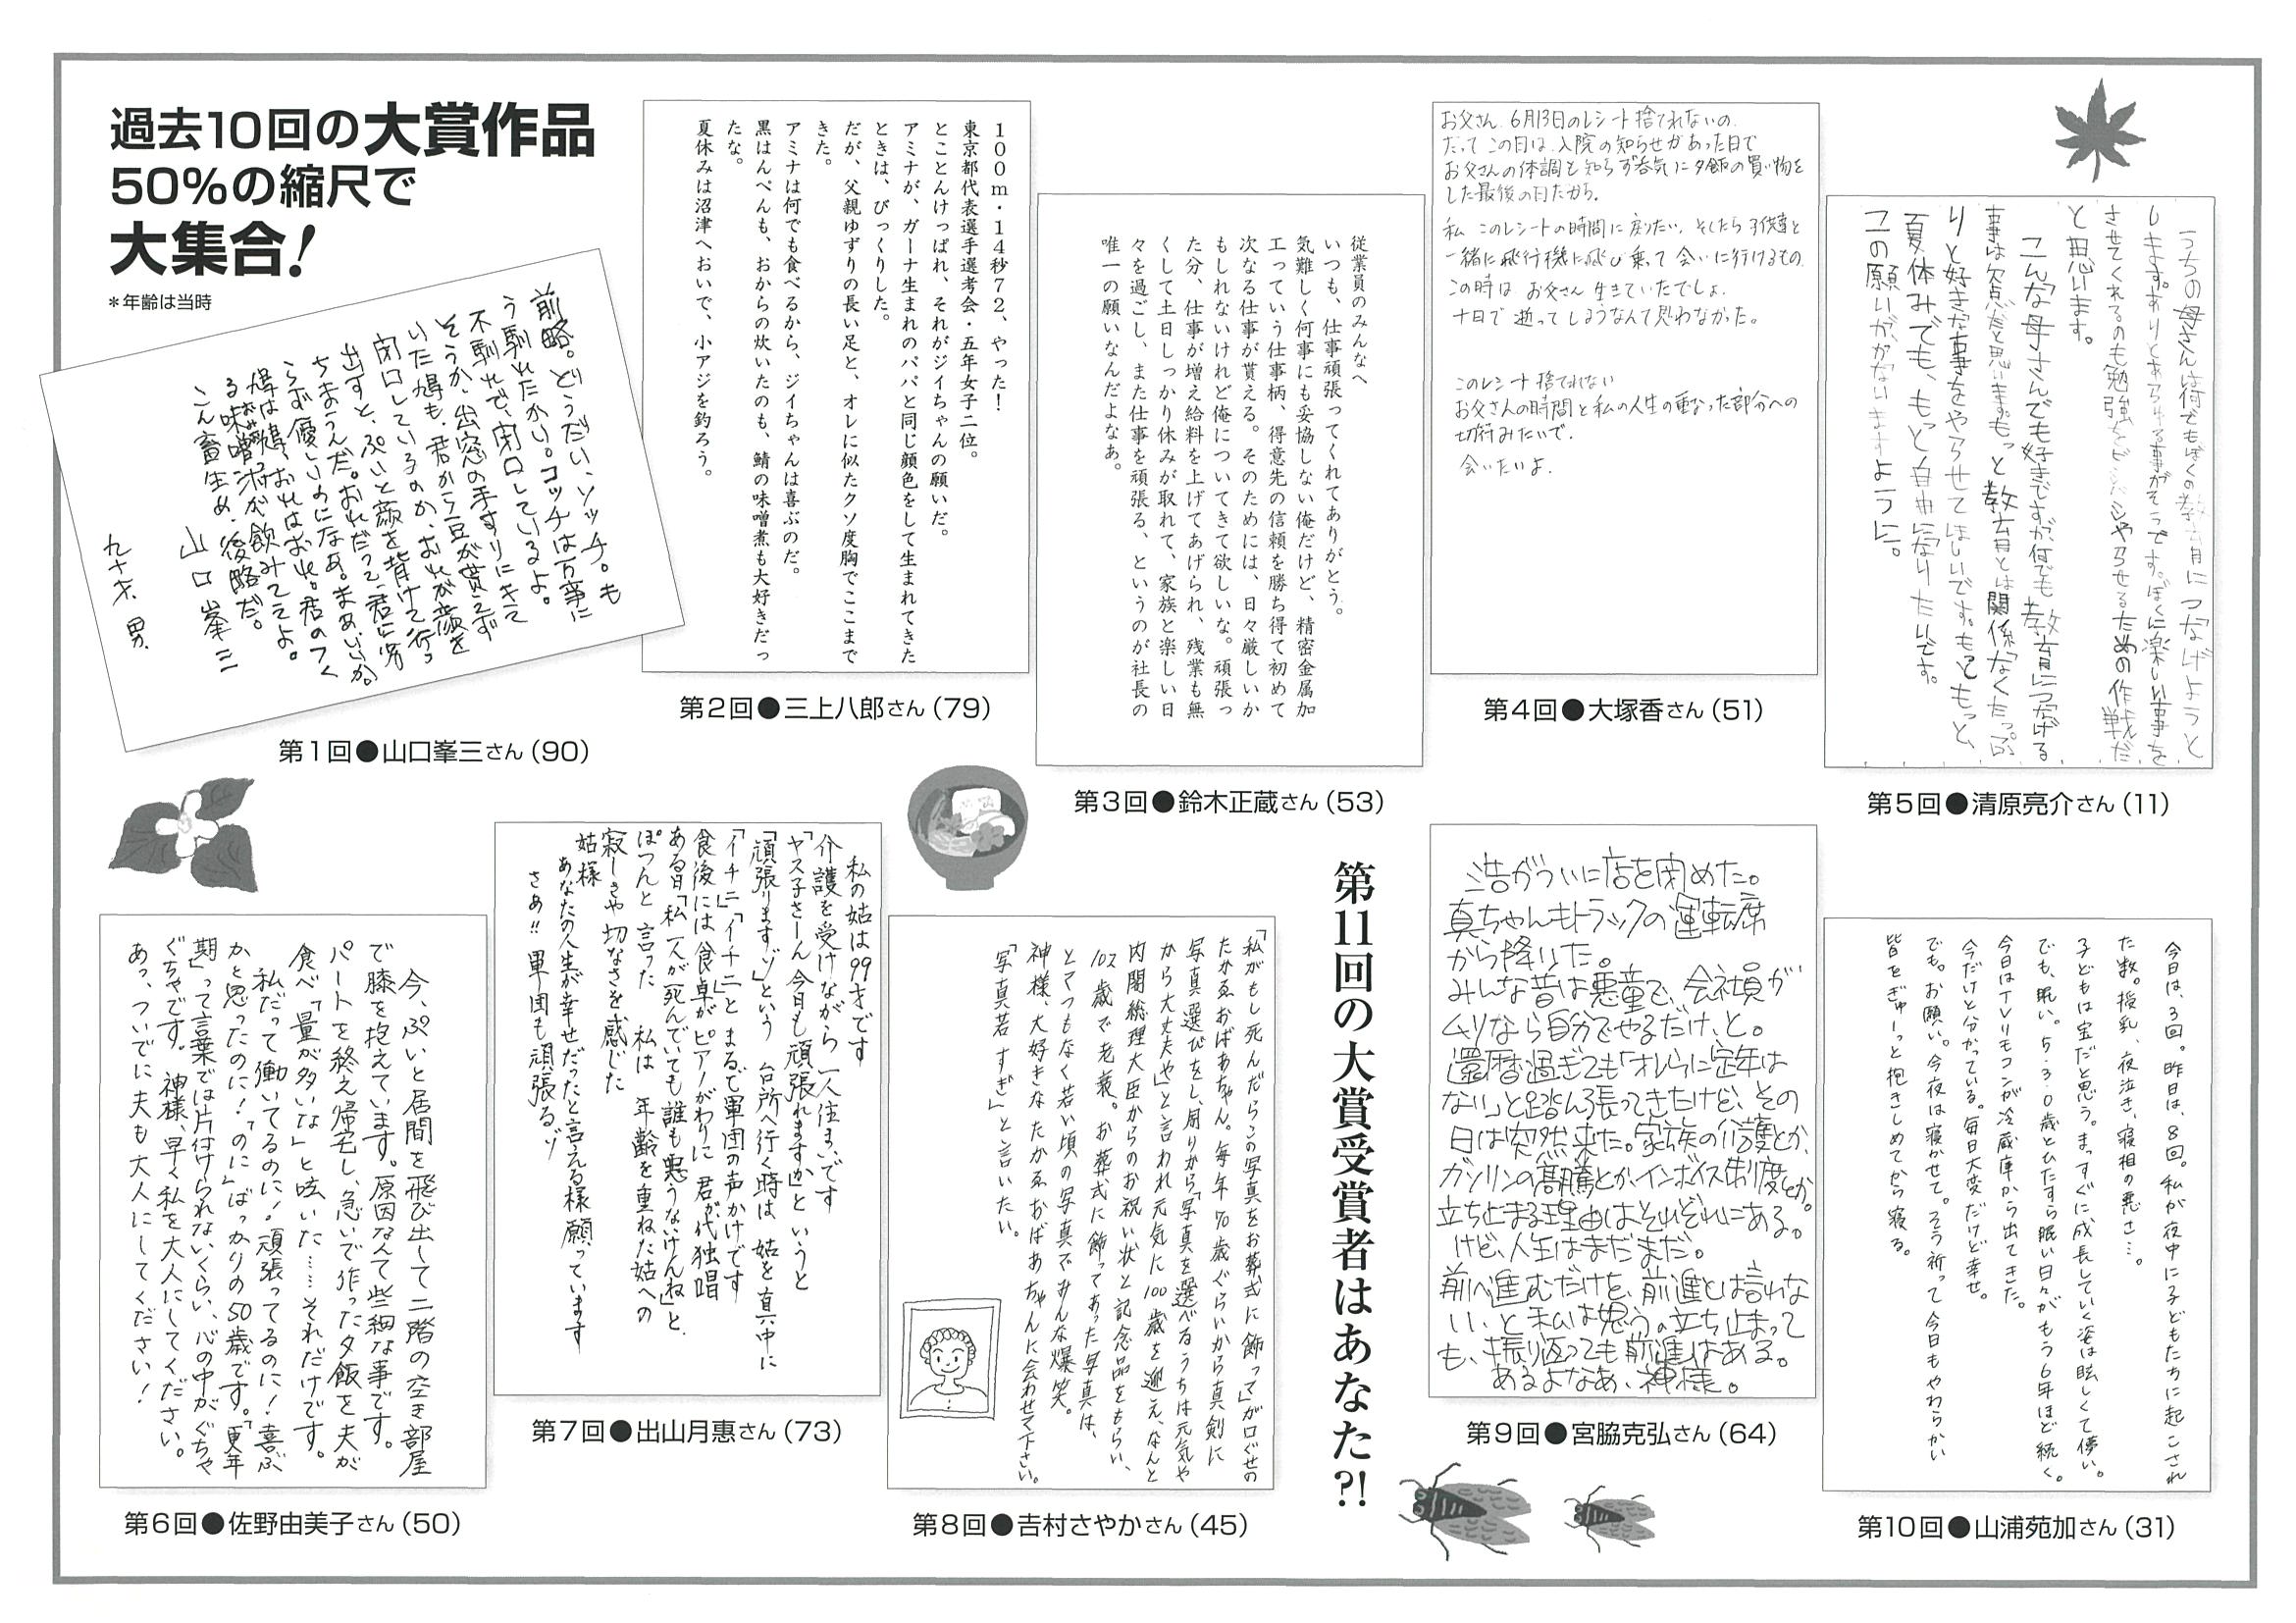 過去10回の大賞作品
50%の縮尺で
大集合!
*年齢は当時
前略。どうだい、ソッチ。も
う馴れたかい。コッチは万事に
不馴れで、閉口しているよ。
そうか、出窓の手すりにキて
いた鳩も、君から豆が貰えず
閉口しているのか、おれが顔を
出すと、ぷいと顔を背けて行っ
ちまうんだ。おれだって、君に劣
らず優しいのになあ。まあいいか。
鳩は鳩、おれはおれ。君のつく
る味噌汁が飲みてえよ。
こん畜生め、後略だ。
山口峯三
九十才 男
第1回●山口峯三さん(90)
100m・14秒72、やった!
東京都代表選手選考会・五年女子二位。
とことんけっぱれ、それがジイちゃんの願いだ。
アミナが、ガーナ生まれのパパと同じ顔色をして生まれてきた
ときは、びっくりした。
だが、父親ゆずりの長い足と、オレに似たクソ度胸でここまで
きた。
アミナは何でも食べるから、ジイちゃんは喜ぶのだ。
黒はんぺんも、おからの炊いたのも、鯖の味噌煮も大好きだっ
たな。
夏休みは沼津へおいで、小アジを釣ろう。
第2回●三上八郎さん(79)
従業員のみんなへ
いつも、仕事頑張ってくれてありがとう。
気難しく何事にも妥協しない俺だけど、精密金属加
工っていう仕事柄、得意先の信頼を勝ち得て初めて
次なる仕事が貰える。そのためには、日々厳しいか
もしれないけれど俺についてきて欲しいな。頑張っ
た分、仕事が増え給料を上げてあげられ、残業も無
くして土日しっかり休みが取れて、家族と楽しい日
々を過ごし、また仕事を頑張る、というのが社長の
唯一の願いなんだよなあ。
第3回●鈴木正蔵さん(53)
お父さん、6月13日のレシート捨てれないの。
だって この日は、入院の知らせがあった日で
お父さんの体調を知らず呑気に夕飯の買い物を
した最後の日だから。
私 このレシートの時間に戻りたい。そしたら 子供達と
一緒に飛行機に飛び乗って 会いに行けるもの
この時は、お父さん 生きていたでしょ。
十日で 逝ってしまうなんて思わなかった。
このレシート捨てれない
お父さんの時間と私の人生の重なった部分への
切符みたいで。
会いたいよ。
第4回●大塚香さん(51)
うちの母さんは何でもぼくの教育につなげようと
します。ありとあらゆる事がそうです。ぼくに楽しい事を
させてくれるのも勉強をビシバシやらせるための作戦だ
と思います。
こんな母さんでも好きですが、何でも教育につなげる
事は欠点だと思います。もっと教育とは関係なくたっぷ
りと好きな事をやらせてほしいです。もっともっと、
夏休みでも、もっと自由になりたいです。
この願いが、かないますように。
第5回●清原亮介さん(11)
今、ぷいと居間を飛び出して二階の空き部屋
で膝を抱えています。原因なんて些細な事です。
パートを終え帰宅し、急いで作った夕飯を夫が
食べ「量が多いな」と呟いた……それだけです。
私だって働いてるのに!頑張ってるのに!喜ぶ
かと思ったのに!「のに」ばっかりの50歳です。「更年
期」って言葉では片付けられないくらい、心の中がぐちゃ
ぐちゃです。神様、早く私を大人にしてください。
あっ、ついでに夫も大人にしてください!
第6回●佐野由美子さん(50)
私の姑は99才です
介護を受けながら一人住まいです
「ヤス子さーん今日も頑張れますか」というと
「頑張りますゾ」という 台所へ行く時は 姑を真中に
「イチニ」「イチニ」と まるで軍団の声かけです
食後には食卓がピアノがわりに 君が代独唱
ある日「私一人が死んでいても誰も思うないけんね」と、
ぽつんと 言った 私は 年齢を重ねた姑への
寂しさや 切なさを感じた
姑様
あなたの人生が幸せだったと言える様 願っています
さあ!! 軍団も頑張るゾ
第7回●出山月惠さん(73)
「私がもし死んだらこの写真をお葬式に飾って」が口ぐせの
たかゑおばあちゃん。毎年70歳ぐらいから真剣に
写真選びをし、周りから「写真を選べるうちは元気や
から大丈夫や」と言われ元気に100歳を迎え、なんと
内閣総理大臣からのお祝い状と記念品をもらい、
102歳で老衰。お葬式に飾ってあった写真は、
とてつもなく若い頃の写真でみんな爆笑。
神様、大好きなたかゑおばあちゃんに会わせて下さい。
「写真若すぎ」と言いたい。
第8回●𠮷村さやかさん(45)
第11回の大賞受賞者はあなた?!
浩がついに店を閉めた。
真ちゃんもトラックの運転席
から降りた。
みんな昔は悪童で、会社員が
ムリなら自分でやるだけ、と。
還暦過ぎても「オレらに定年は
ない」と踏ん張ってきたけど、その
日は突然来た。家族の介護とか、
ガソリンの高騰とか、インボイス制度とか。
立ち止まる理由はそれぞれにある。
けど、人生はまだまだ。
前へ進むだけを、前進とは言わな
い、と私は思う。立ち止まって
も、振り返っても前進はある。
あるよなあ、神様。
第9回●宮脇克弘さん(64)
今日は、3回。昨日は、8回。私が夜中に子どもたちに起こされ
た数。授乳、夜泣き、寝相の悪さ…。
子どもは宝だと思う。まっすぐに成長していく姿は眩しくて儚い。
でも、眠い。5・3・0歳とひたすら眠い日々がもう6年ほど続く。
今日はTVリモコンが冷蔵庫から出てきた。
今だけと分かっている。毎日大変だけど幸せ。
でも。お願い。今夜は寝かせて。そう祈って今日もやわらかい
皆をぎゅーっと抱きしめてから寝る。
第10回●山浦苑加さん(31)